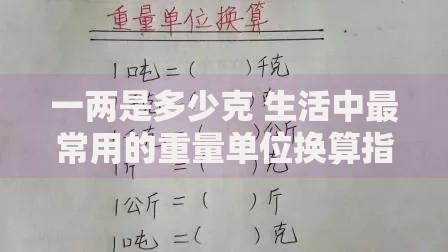 重量单位换算
1吨=( )千克
一两是多少克 生活中最
常用的重量单位换算指
1公斤=( )斤
1吨=( )克